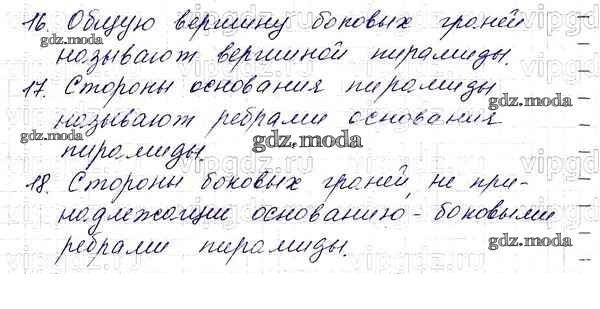 16. Общую вершину боковых граней
называют вершиной пирамиды.
17. Стороны основания пирамиды
называют ребрами основания
пирамиды.
18. Стороны боковых граней, не при-
надлежащие основанию, - боковыми
ребрами пирамиды.
gdz.moda
gdz.moda
gdz.moda
gdz.moda
gdz.moda
gdz.moda
gdz.moda
vipgdz.ru